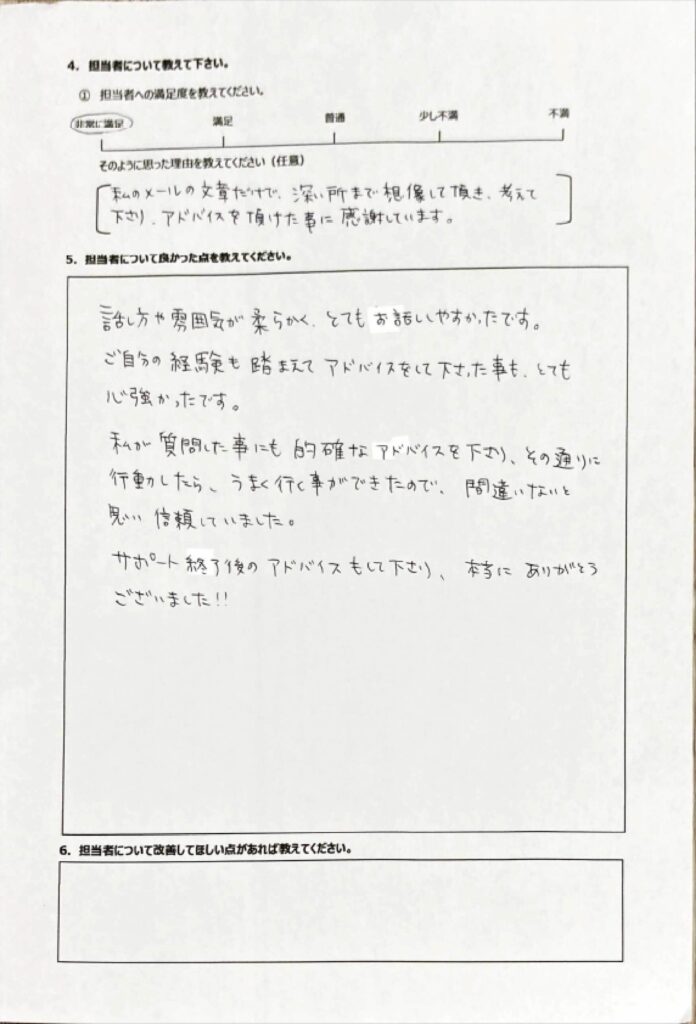 4. 担当者について教えて下さい。
① 担当者への満足度を教えてください。
非常に満足 満足 普通 少し不満 不満
そのように思った理由を教えてください（任意）
私のメールの文章だけで、深い所まで想像して頂き、考えて
下さり、アドバイスを頂けた事に感謝しています。
5. 担当者について良かった点を教えてください。
話し方や雰囲気が柔らかく、とてもお話ししやすかったです。
ご自分の経験も踏まえてアドバイスをして下さった事も、とても
心強かったです。
私が質問した事にも的確なアドバイスを下さり、その通りに
行動したら、うまく行く事ができたので、間違いないと
思い信頼していました。
サポート終了後のアドバイスもして下さり、本当にありがとう
ございました!!
6. 担当者について改善してほしい点があれば教えてください。